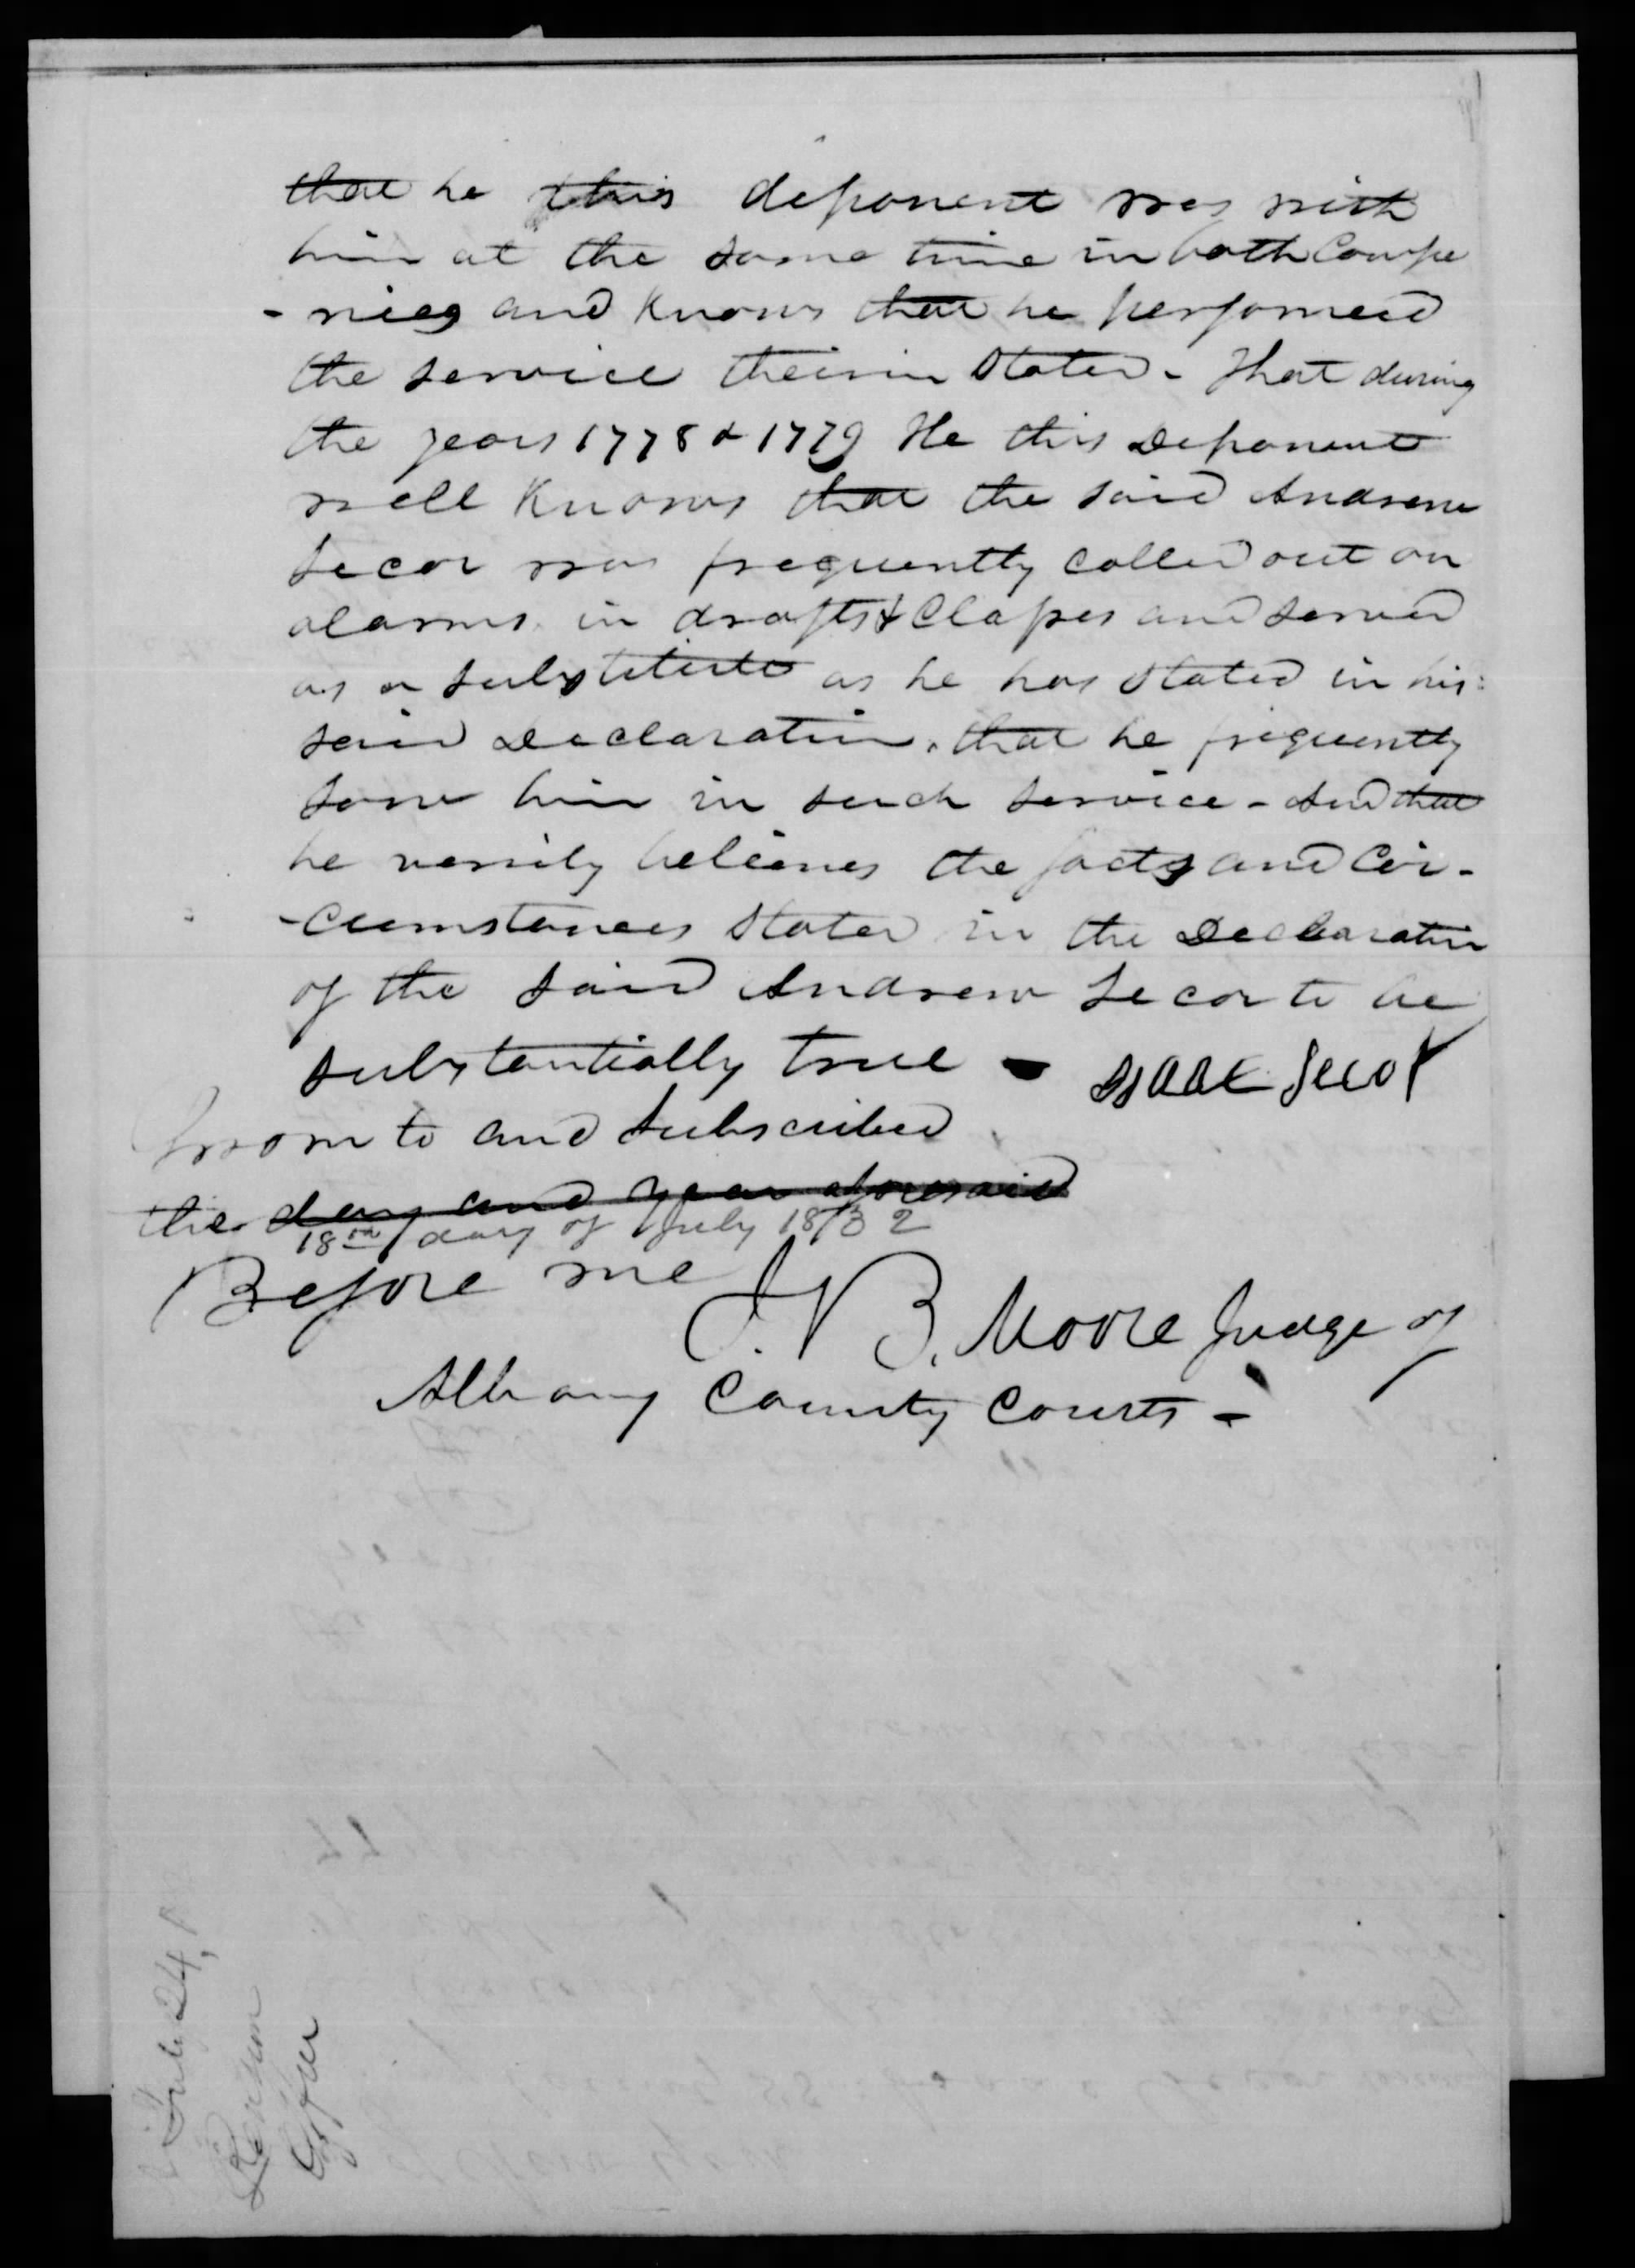 that he this deponent was with
him at the same time in both Compa
- nies and knows that he performed
the service therein stated - That during
the years 1778 & 1779 He this Deponent
well knows that the said Andrew
Secor was frequently called out on
alarms in drafts & Classes and served
as a substitute as he has stated in his
said Declaration. that he frequently
saw him in such service - And that
he verily believes the facts and Cir-
-cumstances stated in the Declaration
of the said Andrew Secor to be
substantially true - Isaac Secor
Sworn to and subscribed
the day and year aforesaid
18th day of July 1832
Before me
J. B. Moore Judge of
Albany County Courts -
July 24,
Pension
Office